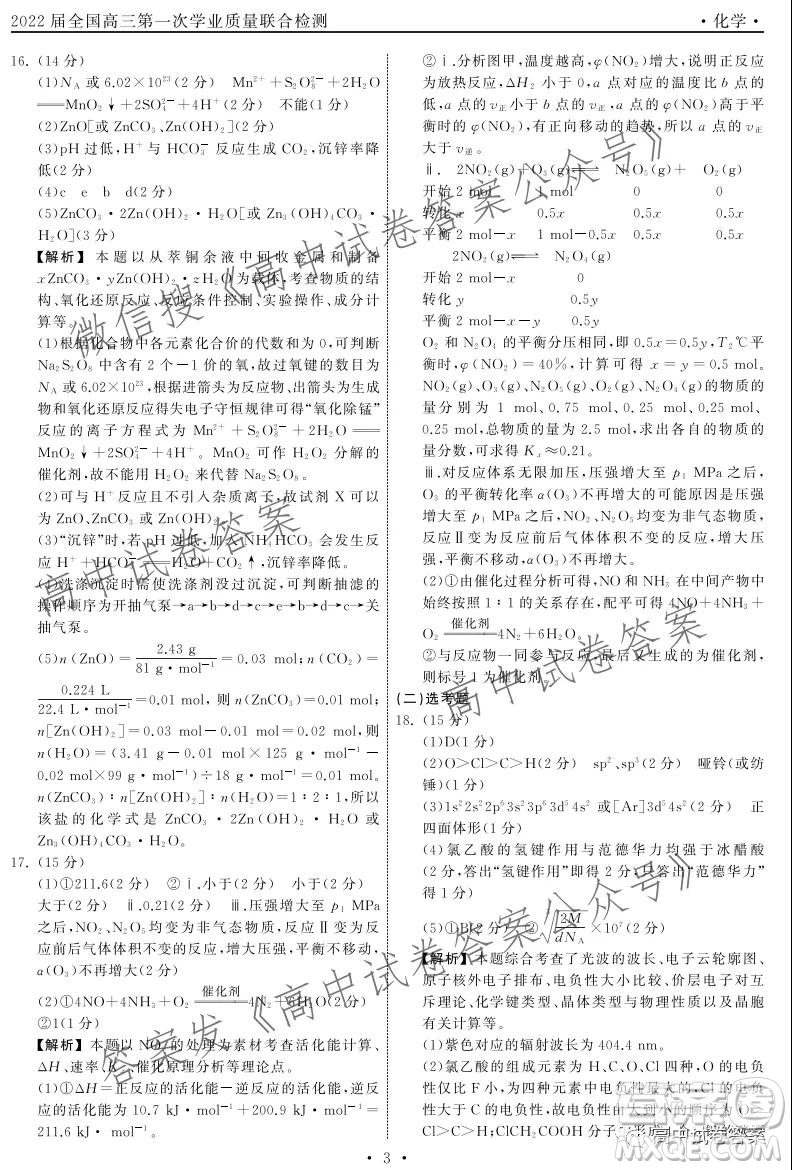 2022 届全国高三第一次学业质量联合检测
·化学·
16. (14 分)
(1)N_A 或 6.02×10²³(2 分) Mn²⁺+S₂O₈²⁻+2H₂O
══MnO₂↓+2SO₄²⁻+4H⁺(2 分) 不能(1 分)
(2)ZnO[或 ZnCO₃、Zn(OH)₂](2 分)
(3)pH 过低, H⁺ 与 HCO₃⁻ 反应生成 CO₂, 沉锌率降
低(2 分)
(4)c e b d(2 分)
(5)ZnCO₃·2Zn(OH)₂·H₂O[或 Zn₃(OH)₄CO₃·
H₂O](3 分)
【解析】 本题以从萃铜余液中回收金属和制备
xZnCO₃·yZn(OH)₂·zH₂O 为载体, 考查物质的结
构、氧化还原反应、反应条件控制、实验操作、成分计
算等。
(1)根据化合物中各元素化合价的代数和为 0, 可判断
Na₂S₂O₈ 中含有 2 个-1 价的氧, 故过氧键的数目为
N_A 或 6.02×10²³, 根据进箭头为反应物、出箭头为生成
物和氧化还原反应得失电子守恒规律可得“氧化除锰”
反应的离子方程式为 Mn²⁺+S₂O₈²⁻+2H₂O══
MnO₂↓+2SO₄²⁻+4H⁺。MnO₂ 可作 H₂O₂ 分解的
催化剂, 故不能用 H₂O₂ 来代替 Na₂S₂O₈。
(2)可与 H⁺ 反应且不引入杂质离子, 故试剂 X 可以
为 ZnO、ZnCO₃ 或 Zn(OH)₂。
(3)“沉锌”时, 若 pH 过低, 加入 NH₄HCO₃ 会发生反
应 H⁺+HCO₃⁻══H₂O+CO₂↑, 沉锌率降低。
(4)洗涤沉淀时需使洗涤剂没过沉淀, 可判断抽滤的
操作顺序为开抽气泵→a→b→d→c→e→b→d→c→关
抽气泵。
(5)n(ZnO)=2.43 g/81 g·mol⁻¹=0.03 mol; n(CO₂)=
0.224 L/22.4 L·mol⁻¹=0.01 mol, 则 n(ZnCO₃)=0.01 mol;
n[Zn(OH)₂]=0.03 mol-0.01 mol=0.02 mol, 则
n(H₂O)=(3.41 g-0.01 mol×125 g·mol⁻¹-
0.02 mol×99 g·mol⁻¹)÷18 g·mol⁻¹=0.01 mol。
n(ZnCO₃)∶n[Zn(OH)₂]∶n(H₂O)=1∶2∶1, 所以
该盐的化学式是 ZnCO₃·2Zn(OH)₂·H₂O 或
Zn₃(OH)₄CO₃·H₂O。
17. (15 分)
(1)①211.6(2 分) ②ⅰ.小于(2 分) 小于(2 分)
大于(2 分) ⅱ.0.21(2 分) ⅲ.压强增大至 p₁ MPa
之后, NO₂、N₂O₅ 均变为非气态物质, 反应Ⅱ变为反
应前后气体体积不变的反应, 增大压强, 平衡不移动,
α(O₃)不再增大(1 分)
(2)①4NO+4NH₃+O₂ 催化剂══ 4N₂+6H₂O(2 分)
②1(1 分)
【解析】 本题以 NO₂ 的处理为素材考查活化能计算、
ΔH、速率、催化原理分析等理论点。
(1)①ΔH=正反应的活化能-逆反应的活化能, 逆反
应的活化能为 10.7 kJ·mol⁻¹+200.9 kJ·mol⁻¹=
211.6 kJ·mol⁻¹。
②ⅰ.分析图甲, 温度越高, φ(NO₂)增大, 说明正反应
为放热反应, ΔH₂ 小于 0, a 点对应的温度比 b 点的
低, a 点的 v正小于 b 点的 v正, a 点的 φ(NO₂)高于平
衡时的 φ(NO₂), 有正向移动的趋势, 所以 a 点的 v正
大于 v逆。
ⅱ. 2NO₂(g)+O₃(g)⇌ N₂O₅(g)+ O₂(g)
开始 2 mol 1 mol 0 0
转化 x 0.5x 0.5x 0.5x
平衡 2 mol-x 1 mol-0.5x 0.5x 0.5x
2NO₂(g)⇌ N₂O₄(g)
开始 2 mol 0
转化 y 0.5y
平衡 2 mol-x-y 0.5y
O₂ 和 N₂O₄ 的平衡分压相同, 即 0.5x=0.5y, T₂℃平
衡时, φ(NO₂)=40%, 计算可得 x=y=0.5 mol。
NO₂(g)、O₃(g)、N₂O₅(g)、O₂(g)、N₂O₄(g)的物质的
量分别为 1 mol、0.75 mol、0.25 mol、0.25 mol、
0.25 mol, 总物质的量为 2.5 mol, 求出各自的物质的
量分数, 可求得 Kₓ≈0.21。
ⅲ.对反应体系无限加压, 压强增大至 p₁ MPa 之后,
O₃ 的平衡转化率 α(O₃)不再增大的可能原因是压强
增大至 p₁ MPa 之后, NO₂、N₂O₅ 均变为非气态物质,
反应Ⅱ变为反应前后气体体积不变的反应, 增大压
强, 平衡不移动, α(O₃)不再增大。
(2)①由催化过程分析可得, NO 和 NH₃ 在中间产物中
始终按照 1∶1 的关系存在, 配平可得 4NO+4NH₃+
O₂ 催化剂══ 4N₂+6H₂O。
②与反应物一同参与反应, 最后又生成的为催化剂,
则标号 1 为催化剂。
(二)选考题
18. (15 分)
(1)D(1 分)
(2)O>Cl>C>H(2 分) sp²、sp³(2 分) 哑铃(或纺
锤)(1 分)
(3)1s²2s²2p⁶3s²3p⁶3d⁵4s² 或[Ar]3d⁵4s²(2 分) 正
四面体形(1 分)
(4)氯乙酸的氢键作用与范德华力均强于冰醋酸
(2 分, 答出“氢键作用”即得 2 分, 只答出“范德华力”
得 1 分)
(5)①B(2 分) ②∛(2M/dN_A)×10⁷(2 分)
【解析】 本题综合考查了光波的波长、电子云轮廓图、
原子核外电子排布、电负性大小比较、价层电子对互
斥理论、化学键类型、晶体类型与物理性质以及晶胞
的计算等。
(1)紫色对应的辐射波长为 404.4 nm。
(2)氯乙酸的组成元素为 H、C、O、Cl 四种, O 的电负
性仅比 F 小, 为四种元素中电负性最大的, Cl 的电负
性大于 C, 故电负性由大到小的顺序为 O>
Cl>C>H; ClCH₂COOH 分子
·3·
微信搜《高中试卷答案公众号》
高中试卷答案
高中试卷答案
答案发《高中试卷答案公众号》
高中试卷答案